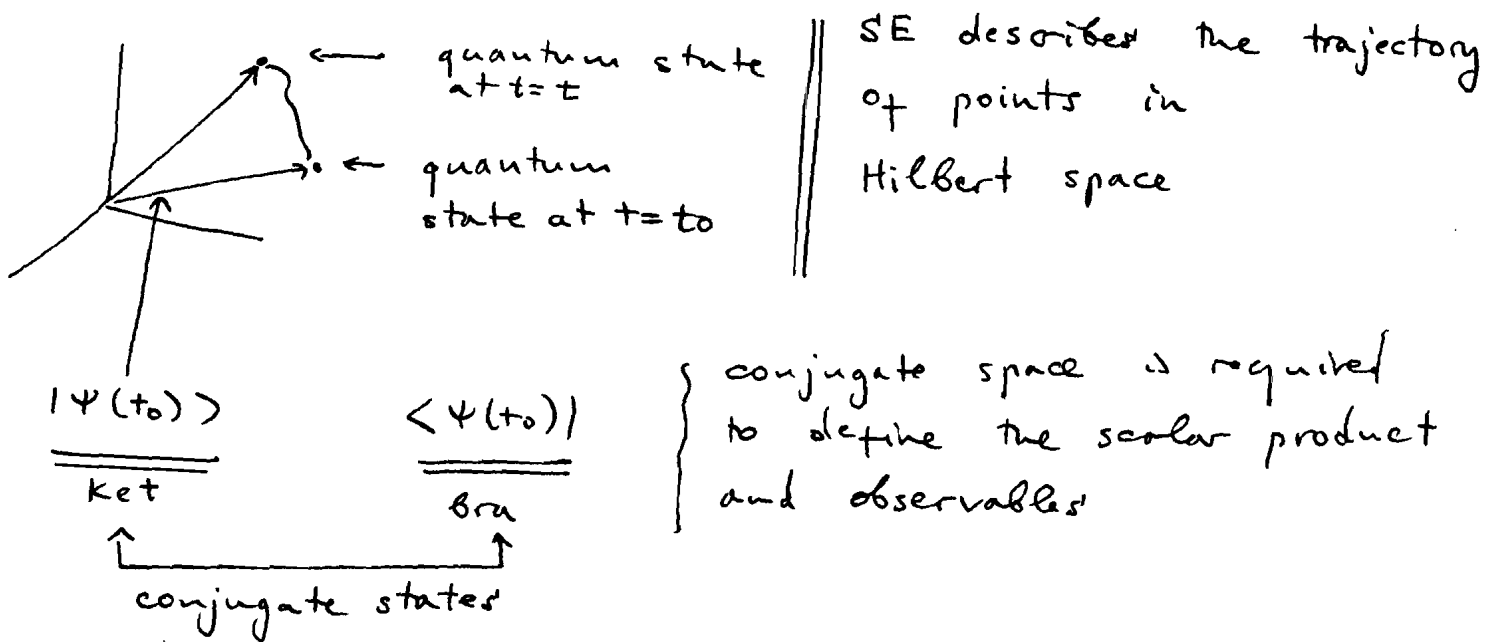 quantum state
at t = t
quantum
state at t = to
SE describes the trajectory
of points in
Hilbert space
|Ψ(to)>
Ket
<Ψ(to)|
bra
conjugate states
conjugate space is required
to define the scalar product
and observables